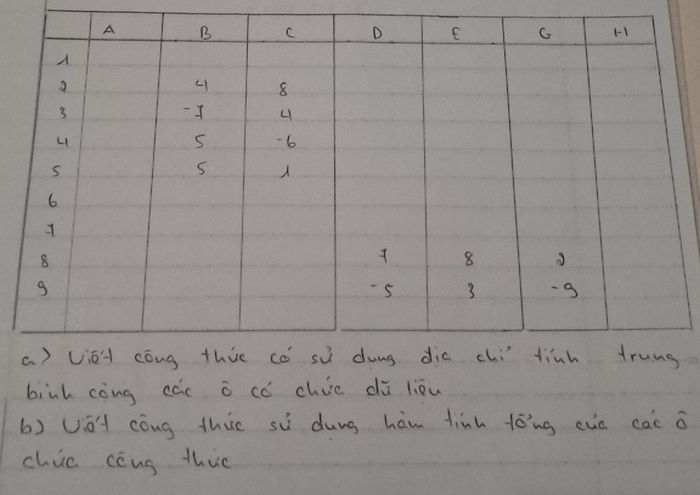 A B C D E G H
1
2 4 8
3 -7 4
4 5 -6
5 5 1
6
7
8 7 8 2
9 -5 3 -9
a) Viết công thức có sử dụng địa chỉ tính trung
bình cộng các ô có chức dữ liệu
b) Viết công thức sử dụng hàm tính tổng của các ô
chứa công thức